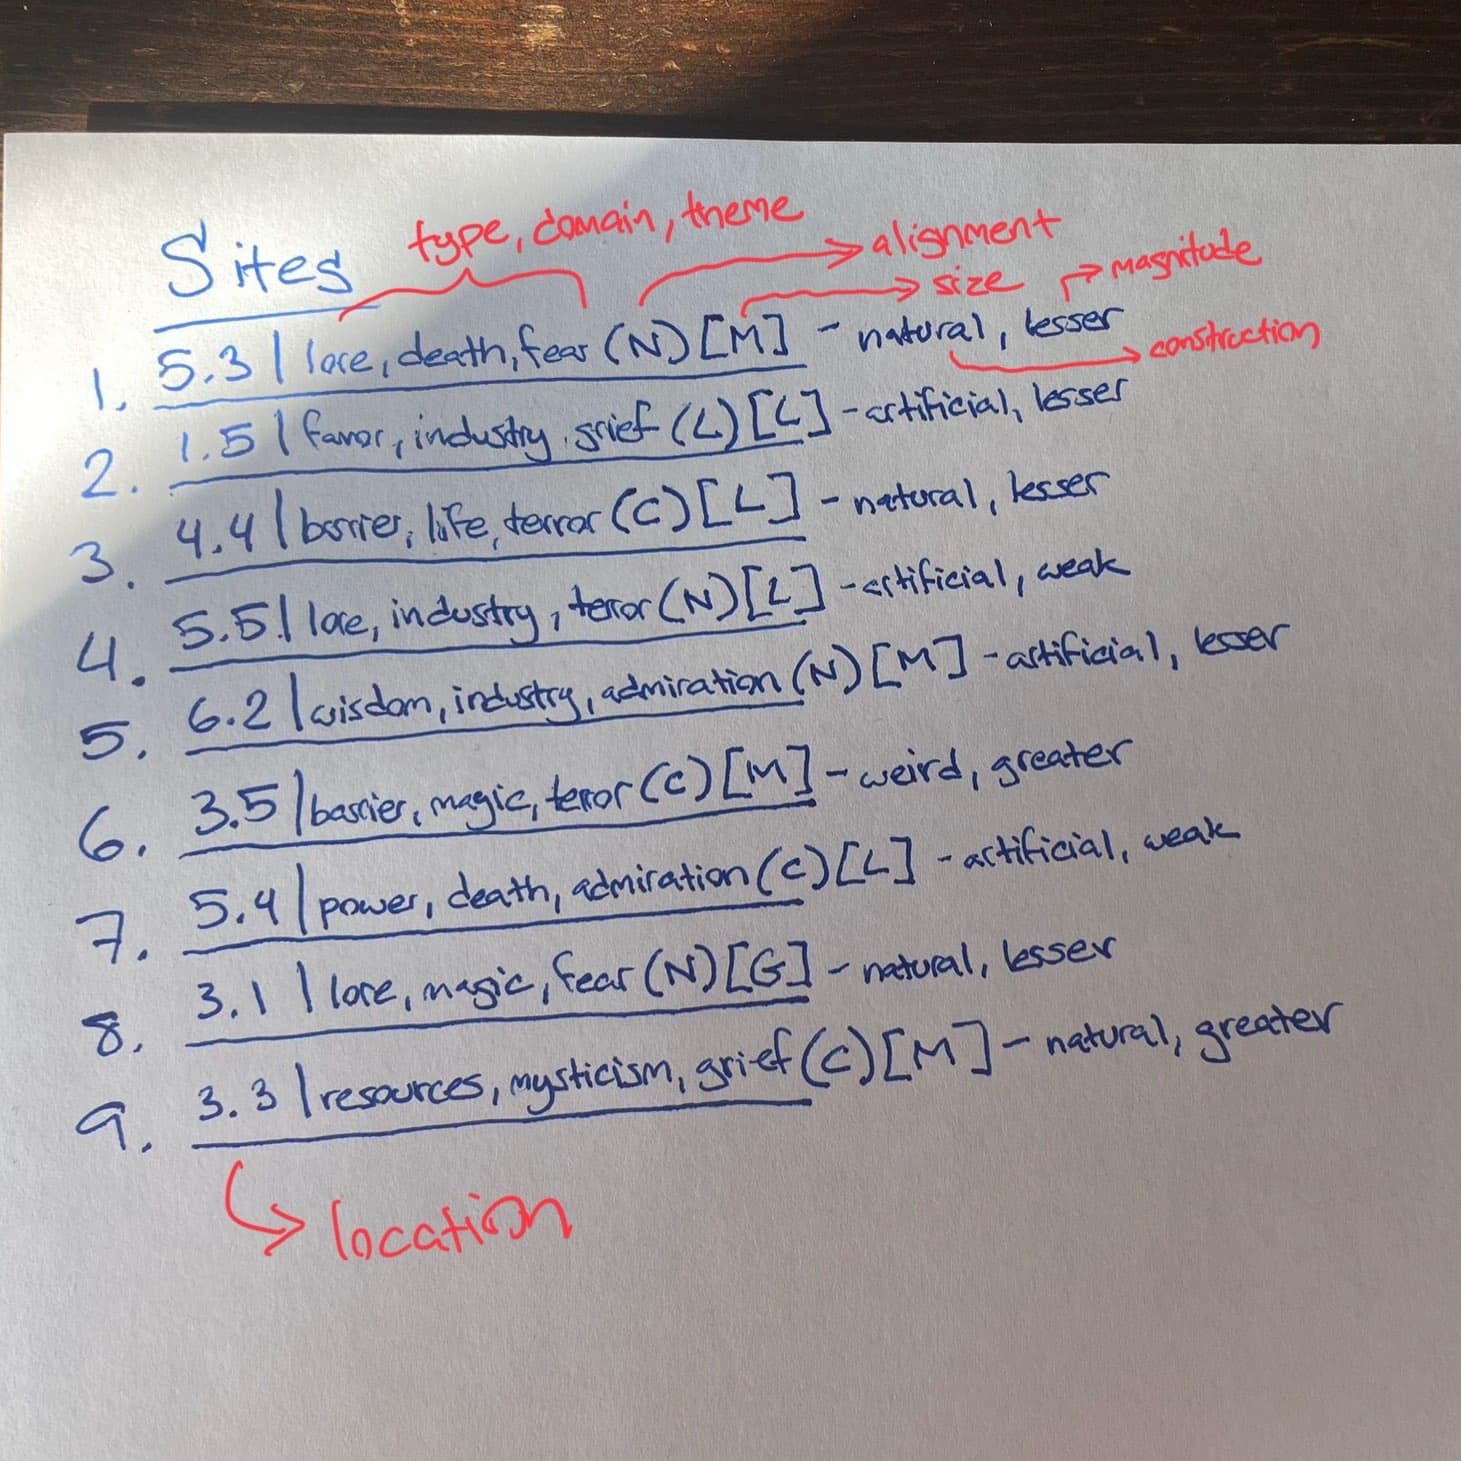 Sites
type, domain, theme
alignment
size
magnitude
construction
1. 5.3 | lore, death, fear (N) [M] - natural, lesser
2. 1.5 | favor, industry, grief (L) [L] - artificial, lesser
3. 4.4 | barrier, life, terror (C) [L] - natural, lesser
4. 5.5 | lore, industry, terror (N) [L] - artificial, weak
5. 6.2 | wisdom, industry, admiration (N) [M] - artificial, lesser
6. 3.5 | barrier, magic, terror (C) [M] - weird, greater
7. 5.4 | power, death, admiration (C) [L] - artificial, weak
8. 3.1 | lore, magic, fear (N) [G] - natural, lesser
9. 3.3 | resources, mysticism, grief (C) [M] - natural, greater
location